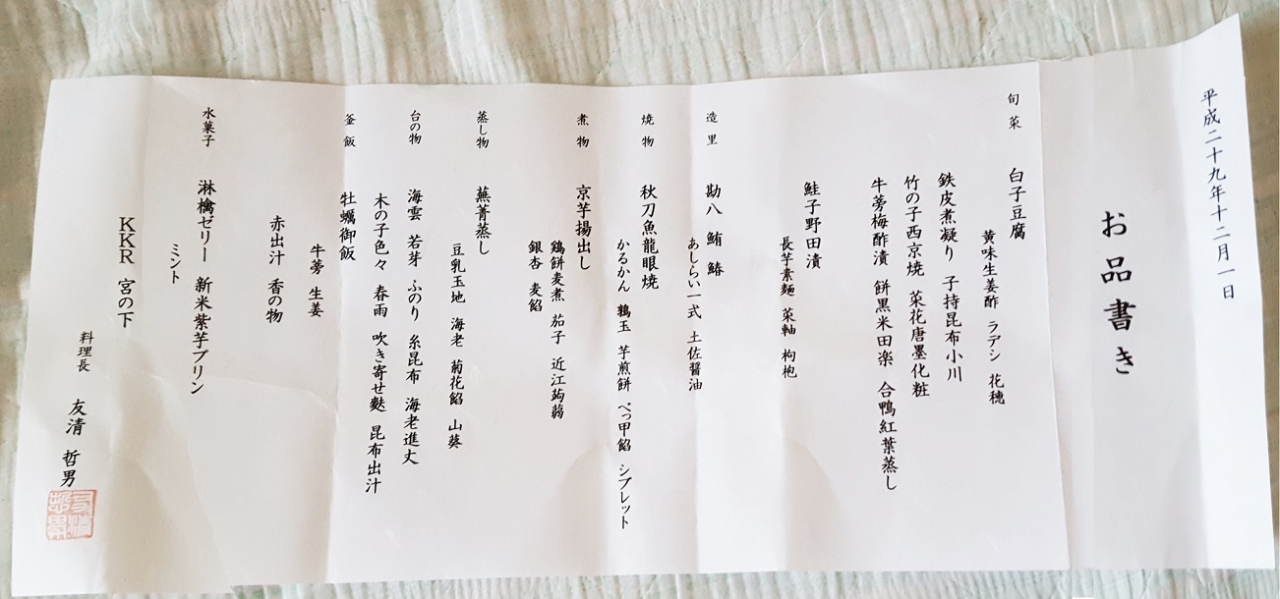 平成二十九年十二月一日
お品書き
旬菜 白子豆腐
黄味生姜酢 ラデシ 花穂
鉄皮煮凝り 子持昆布小川
竹の子西京焼 菜花唐墨化粧
牛蒡梅酢漬 餅黒米田楽 合鴨紅葉蒸し
鮭子野田漬
長芋素麺 菜軸 枸枹
造里 勘八 鮪 鰆
あしらい一式 土佐醤油
焼物 秋刀魚龍眼焼
かるかん 鶉玉 芋煎餅 べっ甲餡 シブレット
煮物 京芋揚出し
鶏餅麦煮 茄子 近江蒟蒻
銀杏 麦餡
蒸し物 蕪菁蒸し
豆乳玉地 海老 菊花餡 山葵
台の物 海雲 若芽 ふのり 糸昆布 海老進丈
木の子色々 春雨 吹き寄せ麩 昆布出汁
釜飯 牡蠣御飯
牛蒡 生姜
赤出汁 香の物
水菓子 淋檎ゼリー 新米紫芋プリン
ミント
KKR 宮の下
料理長 友清 哲男